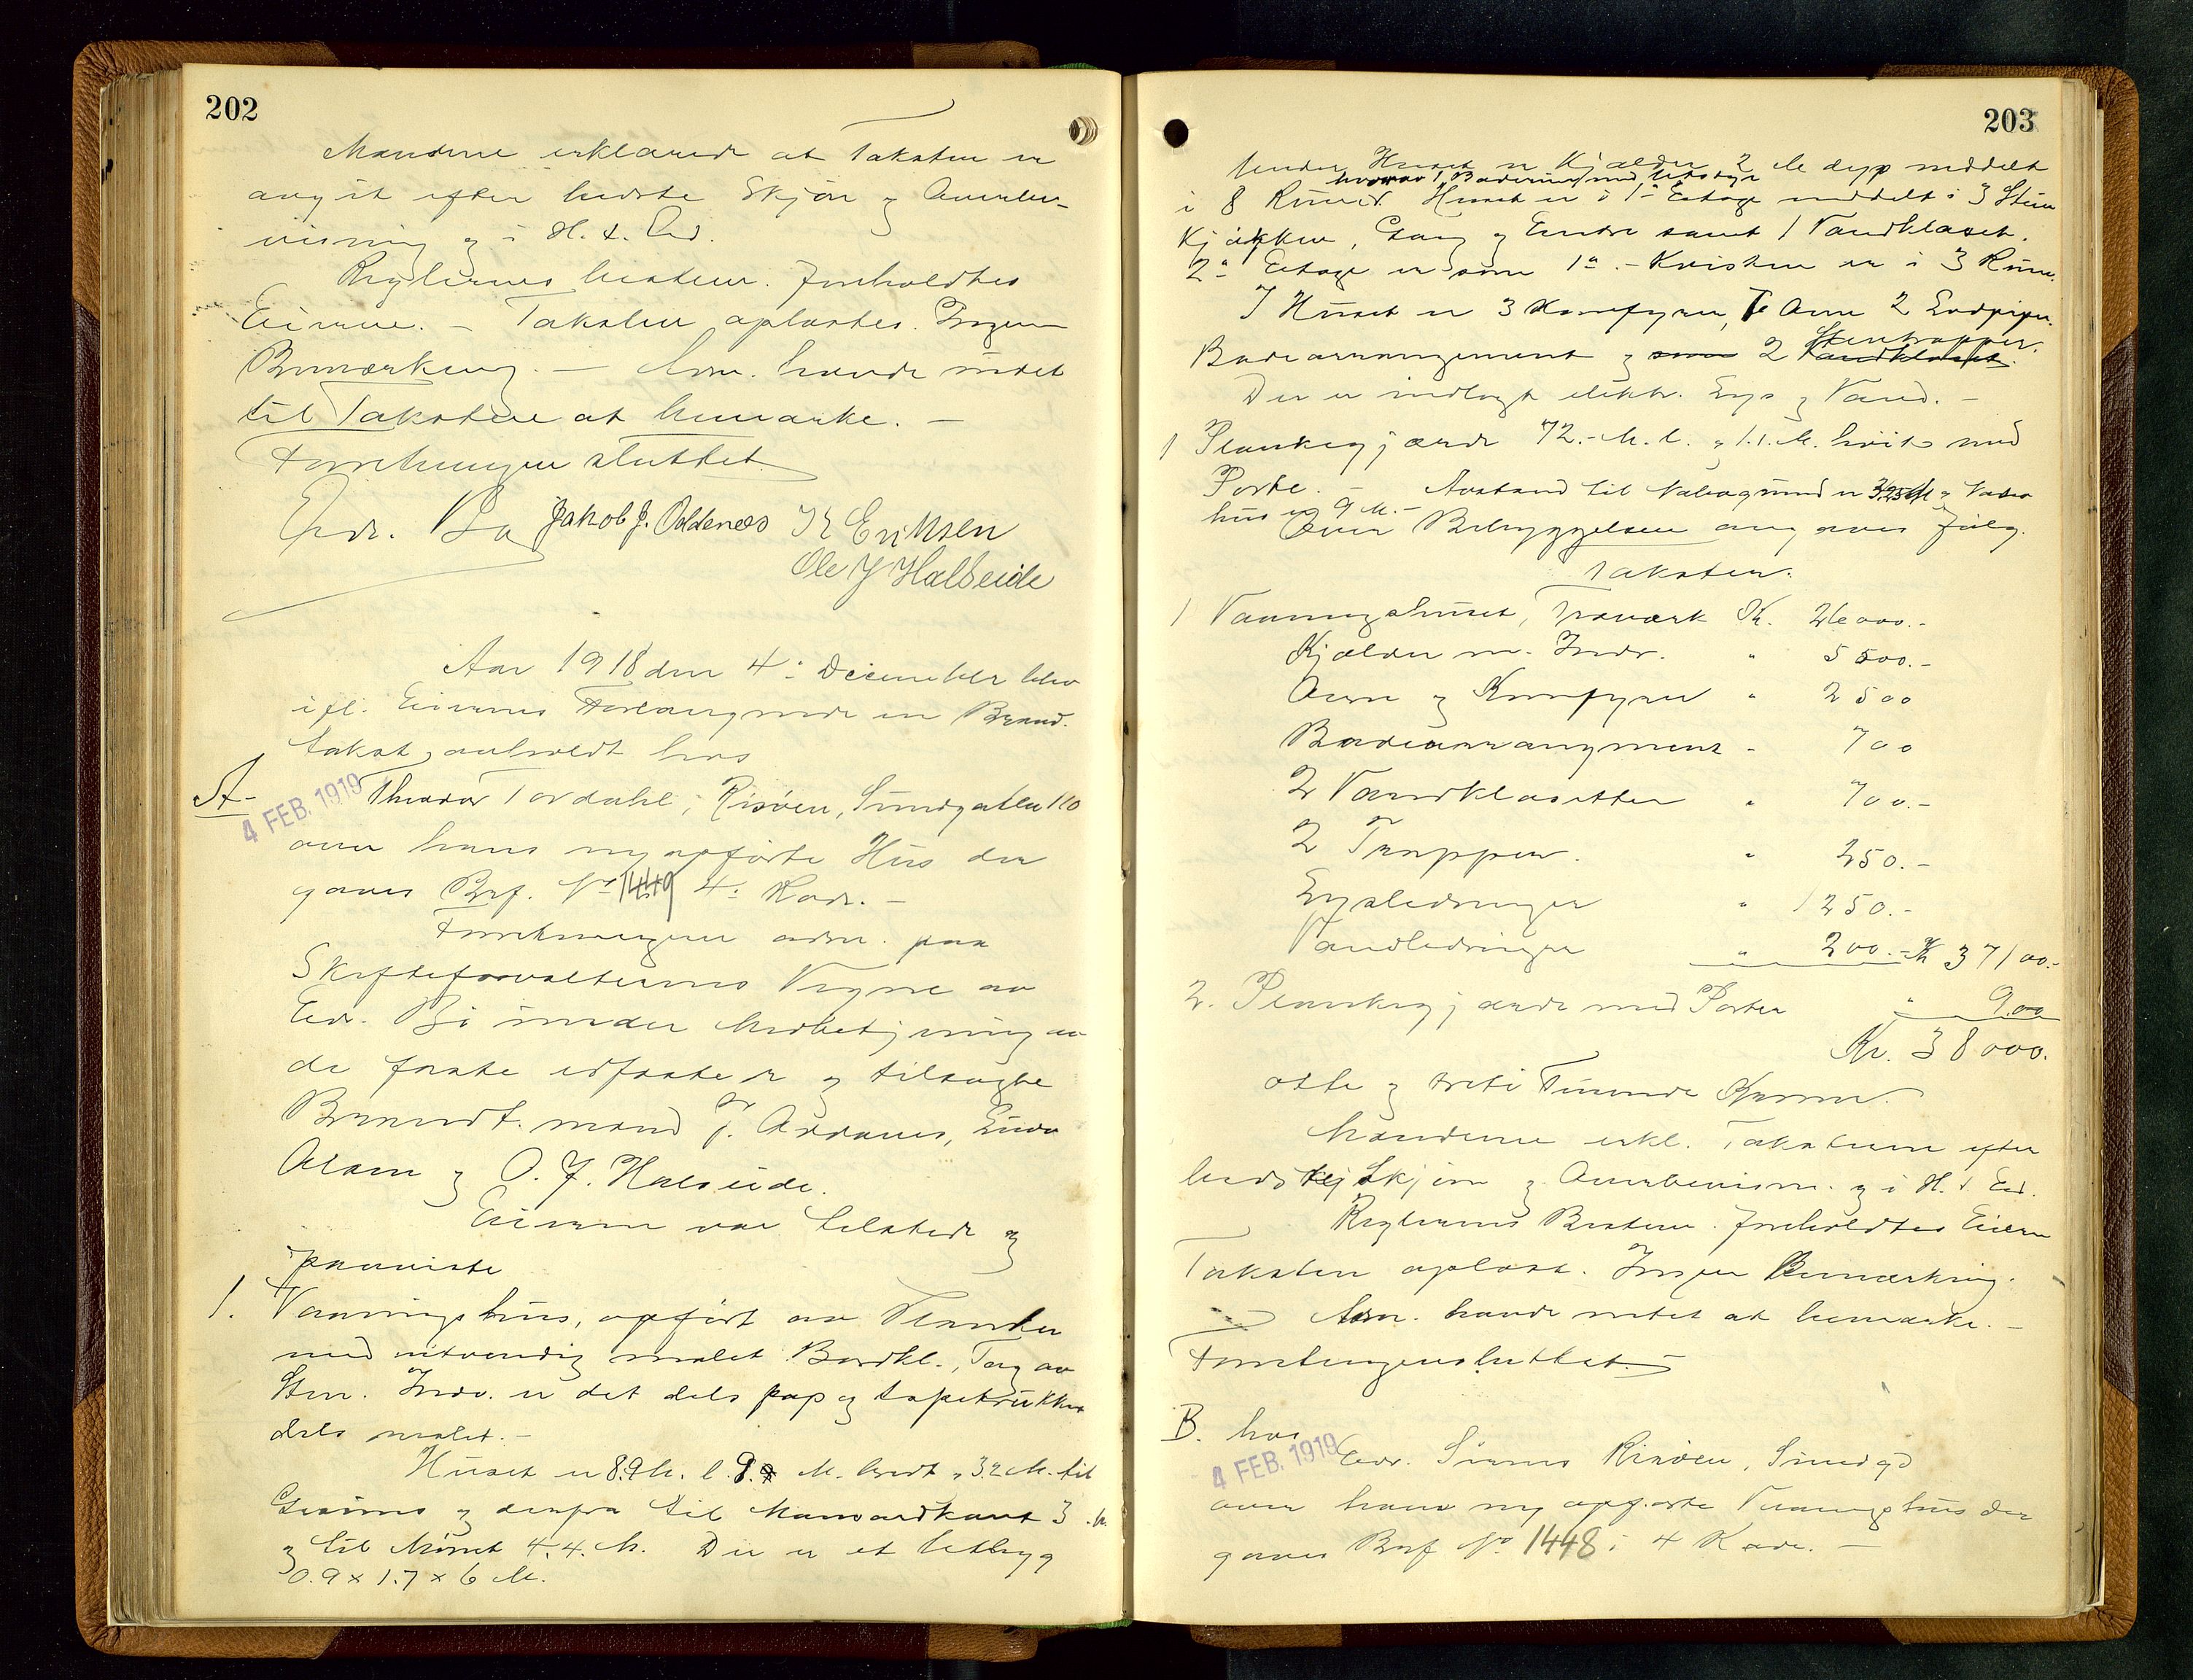 202
Mændene erklærede at Taksten er
avgit efter bedste Skjøn og Overbe-
visning og i H. t. Ed.
Reglernes bestem. foreholdtes
Eierne. – Taksten oplæstes. Ingen
Bemærkning. – Adm. havde intet
til Taksten at bemærke. –
Forretningen sluttet.
Edv. Bø Jakob J. Oddenes K Eriksen
Ole J Halseide
Aar 1918 den 4: December blev
ifl. Eierens Forlangende en Brand-
takst avholdt hos
A-
4 FEB. 1919
Theodor Tordahl, Risøen, Sundgaten 110
over hans nyopførte Hus der
gaves Brf. No 1449 4: Rode. –
Forretningen adm. paa
Skifteforvalterens Vegne av
Edv. Bø under Medbetjening av
de faste edfæstede og tilsagte
Brandt. mænd J. , Einar
Olsen og O. J. Halseide.
Eieren var tilstede og
paaviste
1. Vaaningshus, opført av Planker
med utvendig malet Bordkl., Tag av
Sten. Indv. er det dels pap og tapettrukket
dels malet. –
Huset er 8.9 M. l. 9. M. bredt, 3.2 M. til
Gesims og derfra til Mansardkant 3 M.
og til Mønet 4.4. M. Der er et Utbyg
0.9 x 1.7 x 6 M.
203
Under Huset er Kjælder 2 M dyp inddelt
hvorav 1 Baderum med Utstyr
i 8 Rum. Huset er i 1ste Etage inddelt i 3 Stuer
Kjøkken, Gang og Entre samt 1 Vandkloset.
2den Etage er som 1ste. – Kvisten er i 3 Rum.
I Huset er 3 Komfyrer, Ovne 2 Ildpiper.
Badearrangement og 2 Stentrapper.
Vandkloset.
Der er indlagt elektr. Lys og Vand. –
1 Plankegjærde 72.- M. l. og 1.1. M. høit med
Porte. – Avstand til Nabogrund er 3.25 M og Nabo
hus er 9 M. –
Over Bebyggelsen angaves følg.
Taksten.
1 Vaaningshuset, Træverk Kr. 26000.-
Kjælder m. Indr. " 5500.-
Ovne og Komfyrer " 2500
Badearrangement - 700
2 Vandklosetter " 700.-
2 Trapper. " 250.-
Lysledninger " 1250.-
Vandledninger " 200.- Kr 37100.-
2. Plankegjærde med Porter " 900
Kr. 38000.
otte og treti Tusende Kroner.
Mændene erkl. Taksterne efter
bedste Skjøn og Overbevisn. og i H. t. Ed.
Reglernes Bestem. foreholdtes Eieren
Taksten oplæst. Ingen Bemærkning.
Adm. havde intet at bemærke. –
Forretningen sluttet.
B. hos
4 FEB. 1919
Edv. Risøen, Sundgd
over hans nyopførte Vaaningshus der
gaves Brf No 1448 i 4 Rode. –